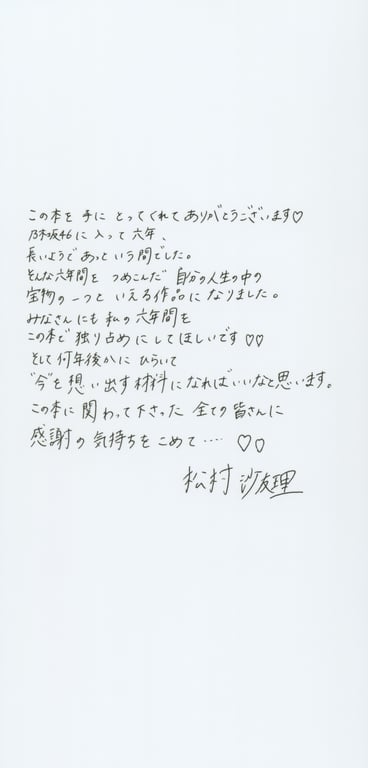 この本を 手に とってくれて ありがとうございます♡
乃木坂46に 入って 六年、
長いようで あっという間でした。
そんな六年間を つめこんだ 自分の人生の中の
宝物の一つと いえる作品に なりました。
みなさんにも 私の六年間を
この本で 独り占めにしてほしいです ♡♡
そして何年後かに ひらいて
"今"を 想い出す材料になればいいなと思います。
この本に 関わって下さった 全ての皆さんに
感謝の 気持ちをこめて‥‥ ♡♡
松村 沙友理